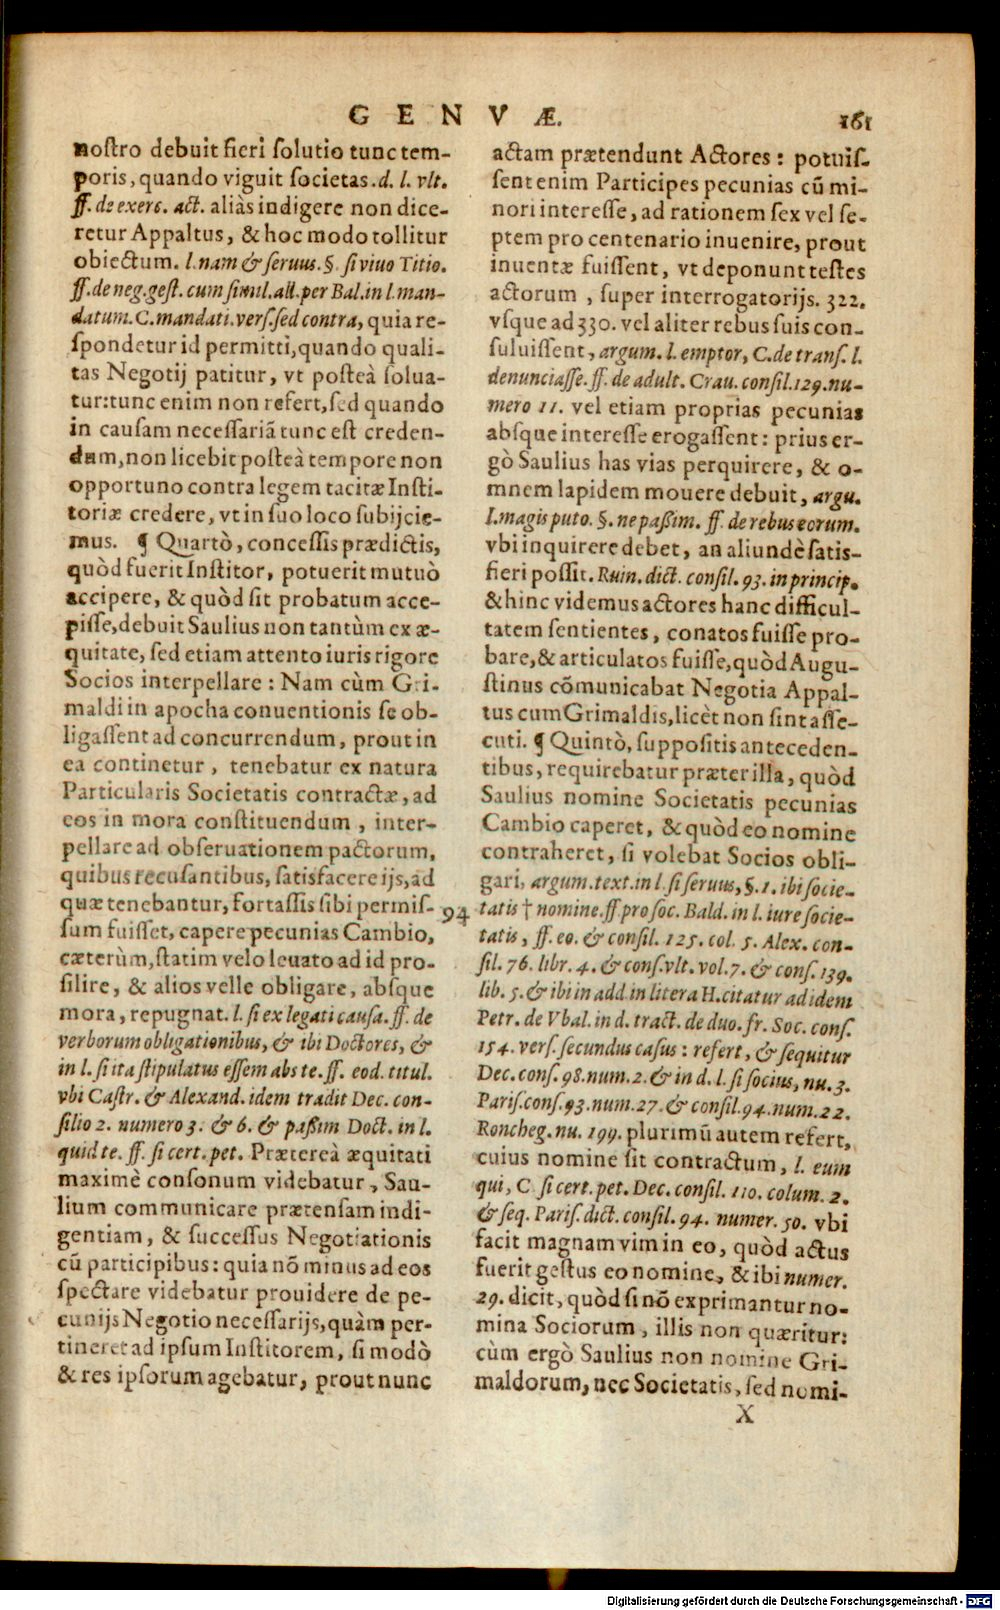 GENVÆ. 161
nostro debuit fieri solutio tunc tem-
poris, quando viguit societas. d. l. vlt.
ff. de exerc. act. aliàs indigere non dice-
retur Appaltus, & hoc modo tollitur
obiectum. l. nam & seruus. §. si viuo Titio.
ff. de neg. gest. cum simil. all. per Bal. in l. man-
datum. C. mandati. vers. sed contra, quia re-
spondetur id permitti, quando quali-
tas Negotij patitur, vt posteà solua-
tur: tunc enim non refert, sed quando
in causam necessariā tunc est creden-
dum, non licebit posteà tempore non
opportuno contra legem tacitæ Insti-
toriæ credere, vt in suo loco subijcie-
mus. ¶ Quartò, concessis prædictis,
quòd fuerit Institor, potuerit mutuò
accipere, & quòd sit probatum acce-
pisse, debuit Saulius non tantùm ex æ-
quitate, sed etiam attento iuris rigore
Socios interpellare: Nam cùm Gri-
maldi in apocha conuentionis se ob-
ligassent ad concurrendum, prout in
ea continetur, tenebatur ex natura
Particularis Societatis contractæ, ad
eos in mora constituendum, inter-
pellare ad obseruationem pactorum,
quibus recusantibus, satisfacere ijs, ad
quæ tenebantur, fortassis sibi permis-
sum fuisset, capere pecunias Cambio,
cæterùm, statim velo leuato ad id pro-
silire, & alios velle obligare, absque
mora, repugnat. l. si ex legati causa. ff. de
verborum obligationibus, & ibi Doctores, &
in l. si ita stipulatus essem abs te. ff. eod. titul.
vbi Castr. & Alexand. idem tradit Dec. con-
silio 2. numero 3. & 6. & passim Doct. in l.
quid te. ff. si cert. pet. Prætereà æquitati
maximè consonum videbatur, Sau-
lium communicare prætensam indi-
gentiam, & successus Negotiationis
cū participibus: quia nō minus ad eos
spectare videbatur prouidere de pe-
cunijs Negotio necessarijs, quàm per-
tineret ad ipsum Institorem, si modò
& res ipsorum agebatur, prout nunc
actam prætendunt Actores: potuis-
sent enim Participes pecunias cū mi-
nori interesse, ad rationem sex vel se-
ptem pro centenario inuenire, prout
inuentæ fuissent, vt deponunt testes
actorum, super interrogatorijs. 322.
vsque ad 330. vel aliter rebus suis con-
suluissent, argum. l. emptor, C. de trans. l.
denunciasse. ff. de adult. Crau. consil. 129. nu-
mero 11. vel etiam proprias pecunias
absque interesse erogassent: prius er-
gò Saulius has vias perquirere, & o-
mnem lapidem mouere debuit, argu.
l. magis puto. §. ne passim. ff. de rebus eorum.
vbi inquirere debet, an aliundè satis-
fieri possit. Ruin. dict. consil. 93. in princip.
& hinc videmus actores hanc difficul-
tatem sentientes, conatos fuisse pro-
bare, & articulatos fuisse, quòd Augu-
stinus cōmunicabat Negotia Appal-
tus cum Grimaldis, licèt non sint asse-
cuti. ¶ Quintò, suppositis anteceden-
tibus, requirebatur præter illa, quòd
Saulius nomine Societatis pecunias
Cambio caperet, & quòd eo nomine
contraheret, si volebat Socios obli-
gari, argum. text. in l. si seruus, §. 1. ibi socie-
94 tatis † nomine. ff. pro soc. Bald. in l. iure socie-
tatis, ff. eo. & consil. 125. col. 5. Alex. con-
sil. 76. libr. 4. & cons. vlt. vol. 7. & cons. 139.
lib. 5. & ibi in add. in litera H. citatur ad idem
Petr. de Vbal. in d. tract. de duo. fr. Soc. cons.
154. vers. secundus casus: refert, & sequitur
Dec. cons. 98. num. 2. & in d. l. si socius, nu. 3.
Paris. cons. 93. num. 27. & consil. 94. num. 22.
Roncheg. nu. 199. plurimū autem refert,
cuius nomine sit contractum, l. eum
qui, C. si cert. pet. Dec. consil. 110. colum. 2.
& seq. Paris. dict. consil. 94. numer. 50. vbi
facit magnam vim in eo, quòd actus
fuerit gestus eo nomine, & ibi numer.
29. dicit, quòd si nō exprimantur no-
mina Sociorum, illis non quæritur:
cùm ergò Saulius non nomine Gri-
maldorum, nec Societatis, sed nomi-
X
Digitalisierung gefördert durch die Deutsche Forschungsgemeinschaft - DFG